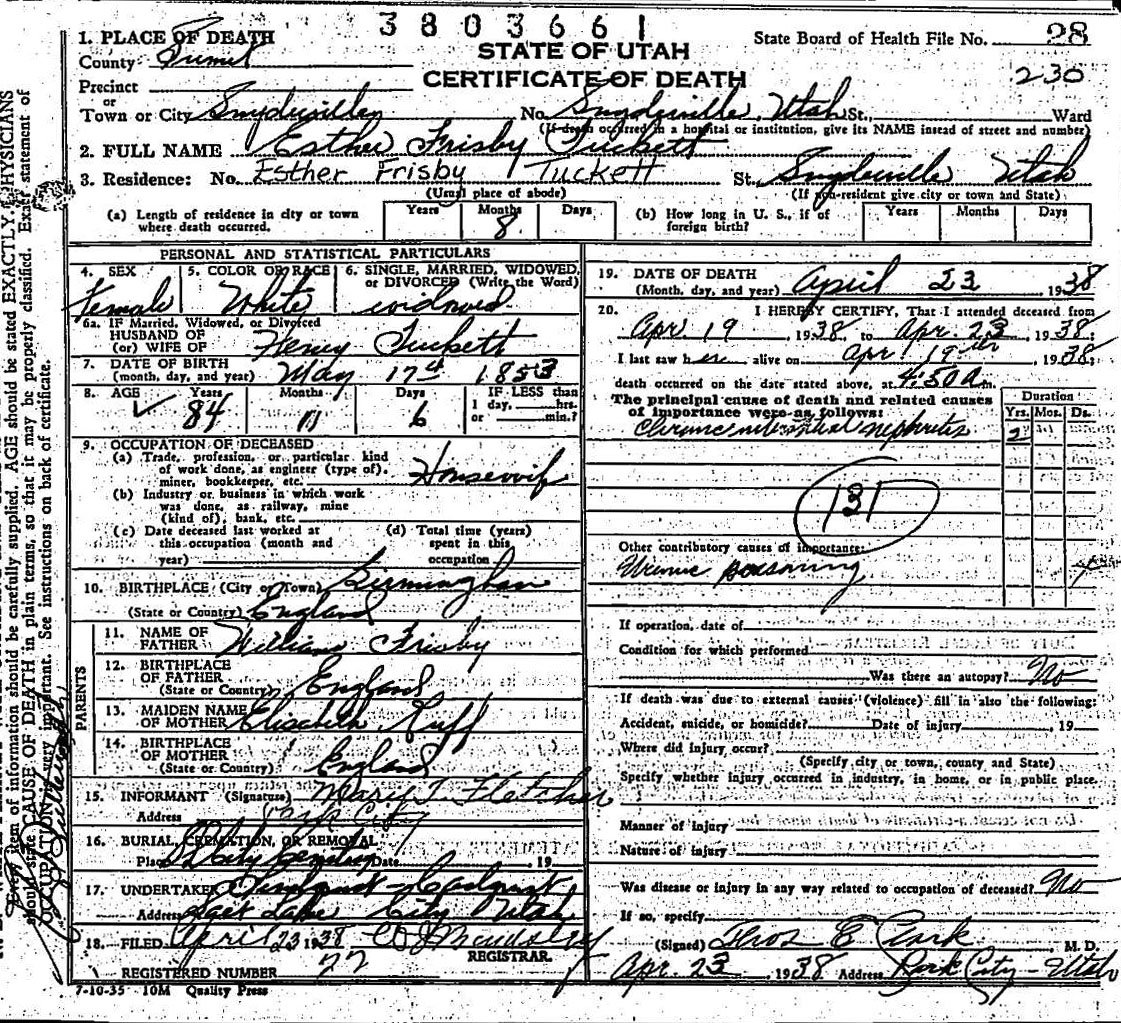 3803661
1. PLACE OF DEATH
STATE OF UTAH
CERTIFICATE OF DEATH
State Board of Health File No. 28
230
County Summit
Precinct
or
Town or City Snyderville No. Snyderville, Utah St., Ward
(If death occurred in a hospital or institution, give its NAME instead of street and number)
2. FULL NAME Esther Frisby Tuckett
3. Residence: No. Esther Frisby Tuckett St. Snyderville Utah
(Usual place of abode) (If non-resident give city or town and State)
(a) Length of residence in city or town where death occurred. Years Months 8 Days
(b) How long in U. S., if of foreign birth? Years Months Days
PERSONAL AND STATISTICAL PARTICULARS
4. SEX Female
5. COLOR OR RACE White
6. SINGLE, MARRIED, WIDOWED, or DIVORCED (Write the Word) widowed
6a. IF Married, Widowed, or Divorced
HUSBAND OF
(or) WIFE OF Henry Tuckett
7. DATE OF BIRTH
(month, day, and year) May 17th 1853
8. AGE Years 84 Months 11 Days 6 IF LESS than 1 day, hrs. or min.?
9. OCCUPATION OF DECEASED
(a) Trade, profession, or particular kind
of work done, as engineer (type of),
miner, bookkeeper, etc. Housewife
(b) Industry or business in which work
was done, as railway, mine
(kind of), bank, etc.
(c) Date deceased last worked at
this occupation (month and
year)
(d) Total time (years)
spent in this
occupation
10. BIRTHPLACE (City or Town) Birmingham
(State or Country) England
PARENTS
11. NAME OF
FATHER William Frisby
12. BIRTHPLACE
OF FATHER
(State or Country) England
13. MAIDEN NAME
OF MOTHER Elisabeth Ruff
14. BIRTHPLACE
OF MOTHER
(State or Country) England
15. INFORMANT (Signature) Mary T. Fletcher
Address Park City
16. BURIAL, CREMATION, OR REMOVAL
Place City Cemetery Date , 19
17. UNDERTAKER
Address Salt Lake City Utah
18. FILED April 23 1938
REGISTRAR.
REGISTERED NUMBER 77
7-10-35 10M Quality Press
19. DATE OF DEATH
(Month, day, and year) April 23 1938
20. I HEREBY CERTIFY, That I attended deceased from
Apr 19, 1938, to Apr. 23, 1938;
I last saw her alive on Apr 19th, 1938;
death occurred on the date stated above, at 4:50 A m.
The principal cause of death and related causes
of importance were as follows:
Duration
Yrs. Mos. Ds.
Chronic interstitial nephritis 2
131
Other contributory causes of importance:
Uremic poisoning
If operation, date of
Condition for which performed
Was there an autopsy? No
If death was due to external causes (violence) fill in also the following:
Accident, suicide, or homicide? Date of injury , 19
Where did injury occur?
(Specify city or town, county and State)
Specify whether injury occurred in industry, in home, or in public place.
Manner of injury
Nature of injury
Was disease or injury in any way related to occupation of deceased? No
If so, specify
(Signed) Thos E Clark, M. D.
Apr. 23, 1938 Address Park City - Utah
item of information should be carefully supplied. AGE should be stated EXACTLY. PHYSICIANS
should state CAUSE OF DEATH in plain terms, so that it may be properly classified. Exact statement of
OCCUPATION is very important. See instructions on back of certificate.